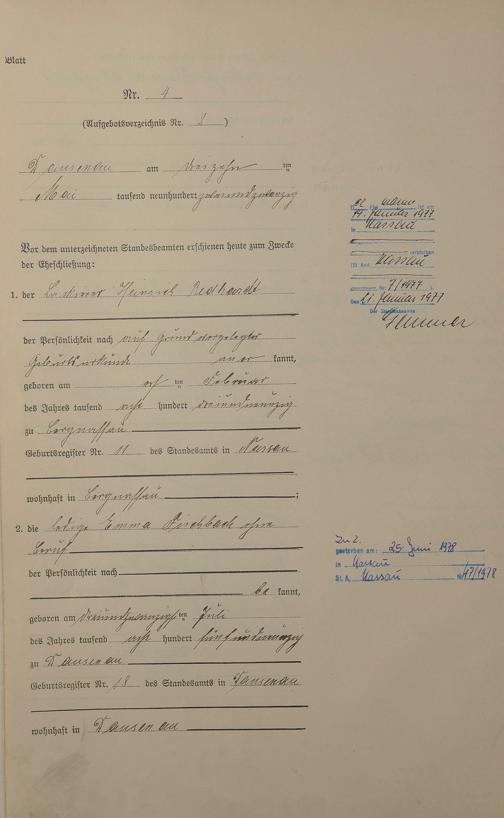 Blatt
Nr. 4
(Aufgebotsverzeichnis Nr. 3)
Dausenau am dreizehn ten
Mai tausend neunhundert zweiundzwanzig
Vor dem unterzeichneten Standesbeamten erschienen heute zum Zwecke
der Eheschließung:
1. der Heinrich
der Persönlichkeit nach auf Grund vorgelegter
Geburtsurkunde aner kannt,
geboren am elf ten Februar
des Jahres tausend acht hundert dreiundneunzig
zu Bergnassau
Geburtsregister Nr. 11 des Standesamts in Nassau
wohnhaft in Bergnassau ;
2. die ledige Emma Fischbach ohne
Beruf
der Persönlichkeit nach
be kannt,
geboren am dreiundzwanzigsten Juli
des Jahres tausend acht hundert fünfundneunzig
zu Dausenau
Geburtsregister Nr. 18 des Standesamts in Dausenau
wohnhaft in Dausenau
14. Januar 1977
in Nassau
verstorben
Nassau
Nr. 7/1977
den 21. Januar 1977
Der Standesbeamte
Zu 2.
gestorben am: 25. Juni 1978
in Nassau
St. A. Nassau Nr. 47/1978